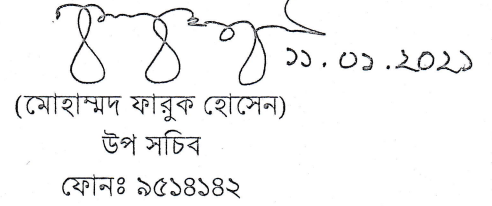 ১১.০১.২০২১
(মোহাম্মদ ফারুক হোসেন)
উপ সচিব
ফোনঃ ৯৫১৪১৪২